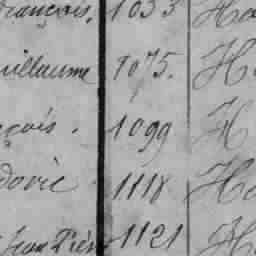 rançois. 1033 Ha
uillaume 1075. H
çois. 1099 H
dovic 1118 Ha
Jean Pier 1121 H